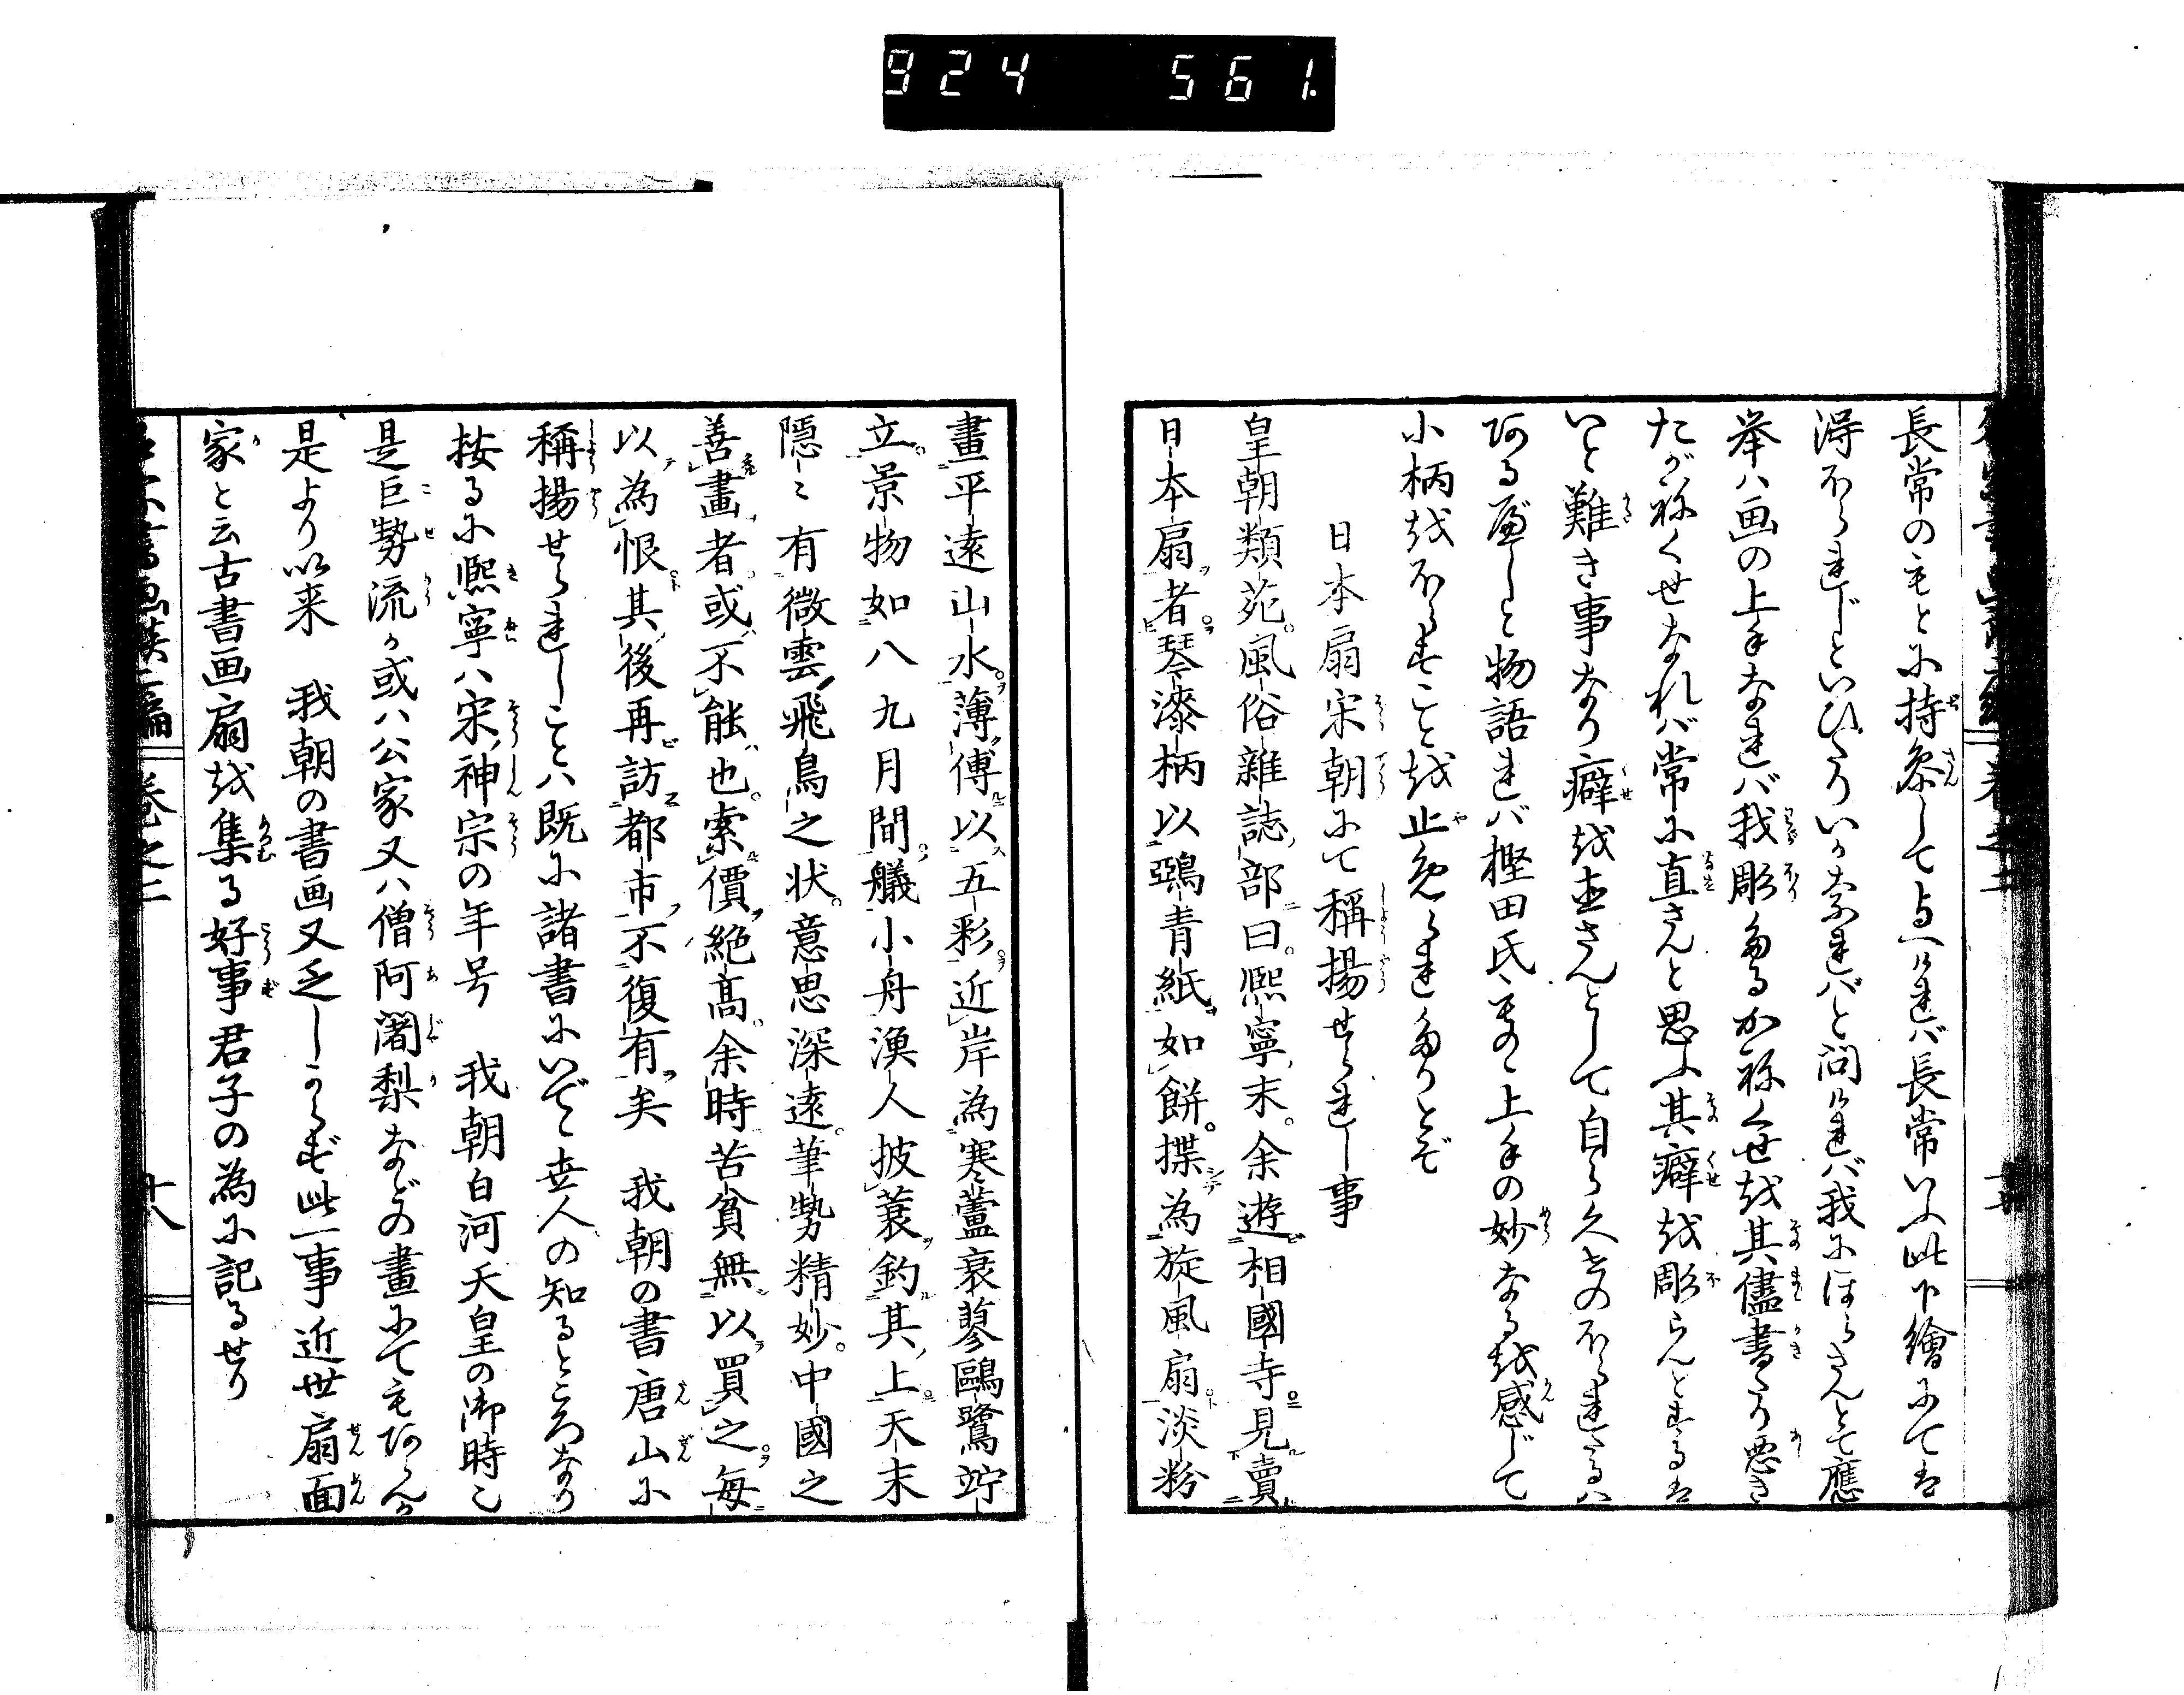 924 561.
長常のもとに持参して与へけれバ長常いふ此下繪にてハ
得ほられじといひたりいかなれバと問けれバ我にほらさんとて應
挙ハ画の上手なれバ我彫たるかねくせを其儘書たり悪き
たがねくせなれバ常に直さんと思ふ其癖を彫らんとするハ
いと難き事なり癖を直さんとして自ら久きのほられたるハ
あるべしと物語れバ樫田氏も上手の妙なるを感じて
小柄をほらすことを止められたりとぞ
日本扇宋朝にて稱揚せられし事
皇朝類苑風俗雑誌部曰熙寧末余遊相國寺見賣
日本扇者琴漆柄以鵶青紙如餅揲為旋風扇淡粉
畫平遠山水薄傅以五彩近岸為寒蘆衰蓼鷗鷺竚
立景物如八九月間艤小舟漁人披蓑釣其上天末
隠〻有微雲飛鳥之状意思深遠筆勢精妙中國之
善畫者或不能也索價絶髙余時苦貧無以買之毎
以為恨其後再訪都市不復有矣 我朝の書唐山に
稱揚せられしことハ既に諸書にいでゝ世人の知るところなり
按るに熙寧ハ宋神宗の年号 我朝白河天皇の御時也
是巨勢流か或ハ公家又ハ僧阿闍梨などの畫にてもあらんか
是より以来 我朝の書画又乏しからず此一事近世扇面
家と云古書画扇を集る好事君子の為に記るせり
卷之二
十八